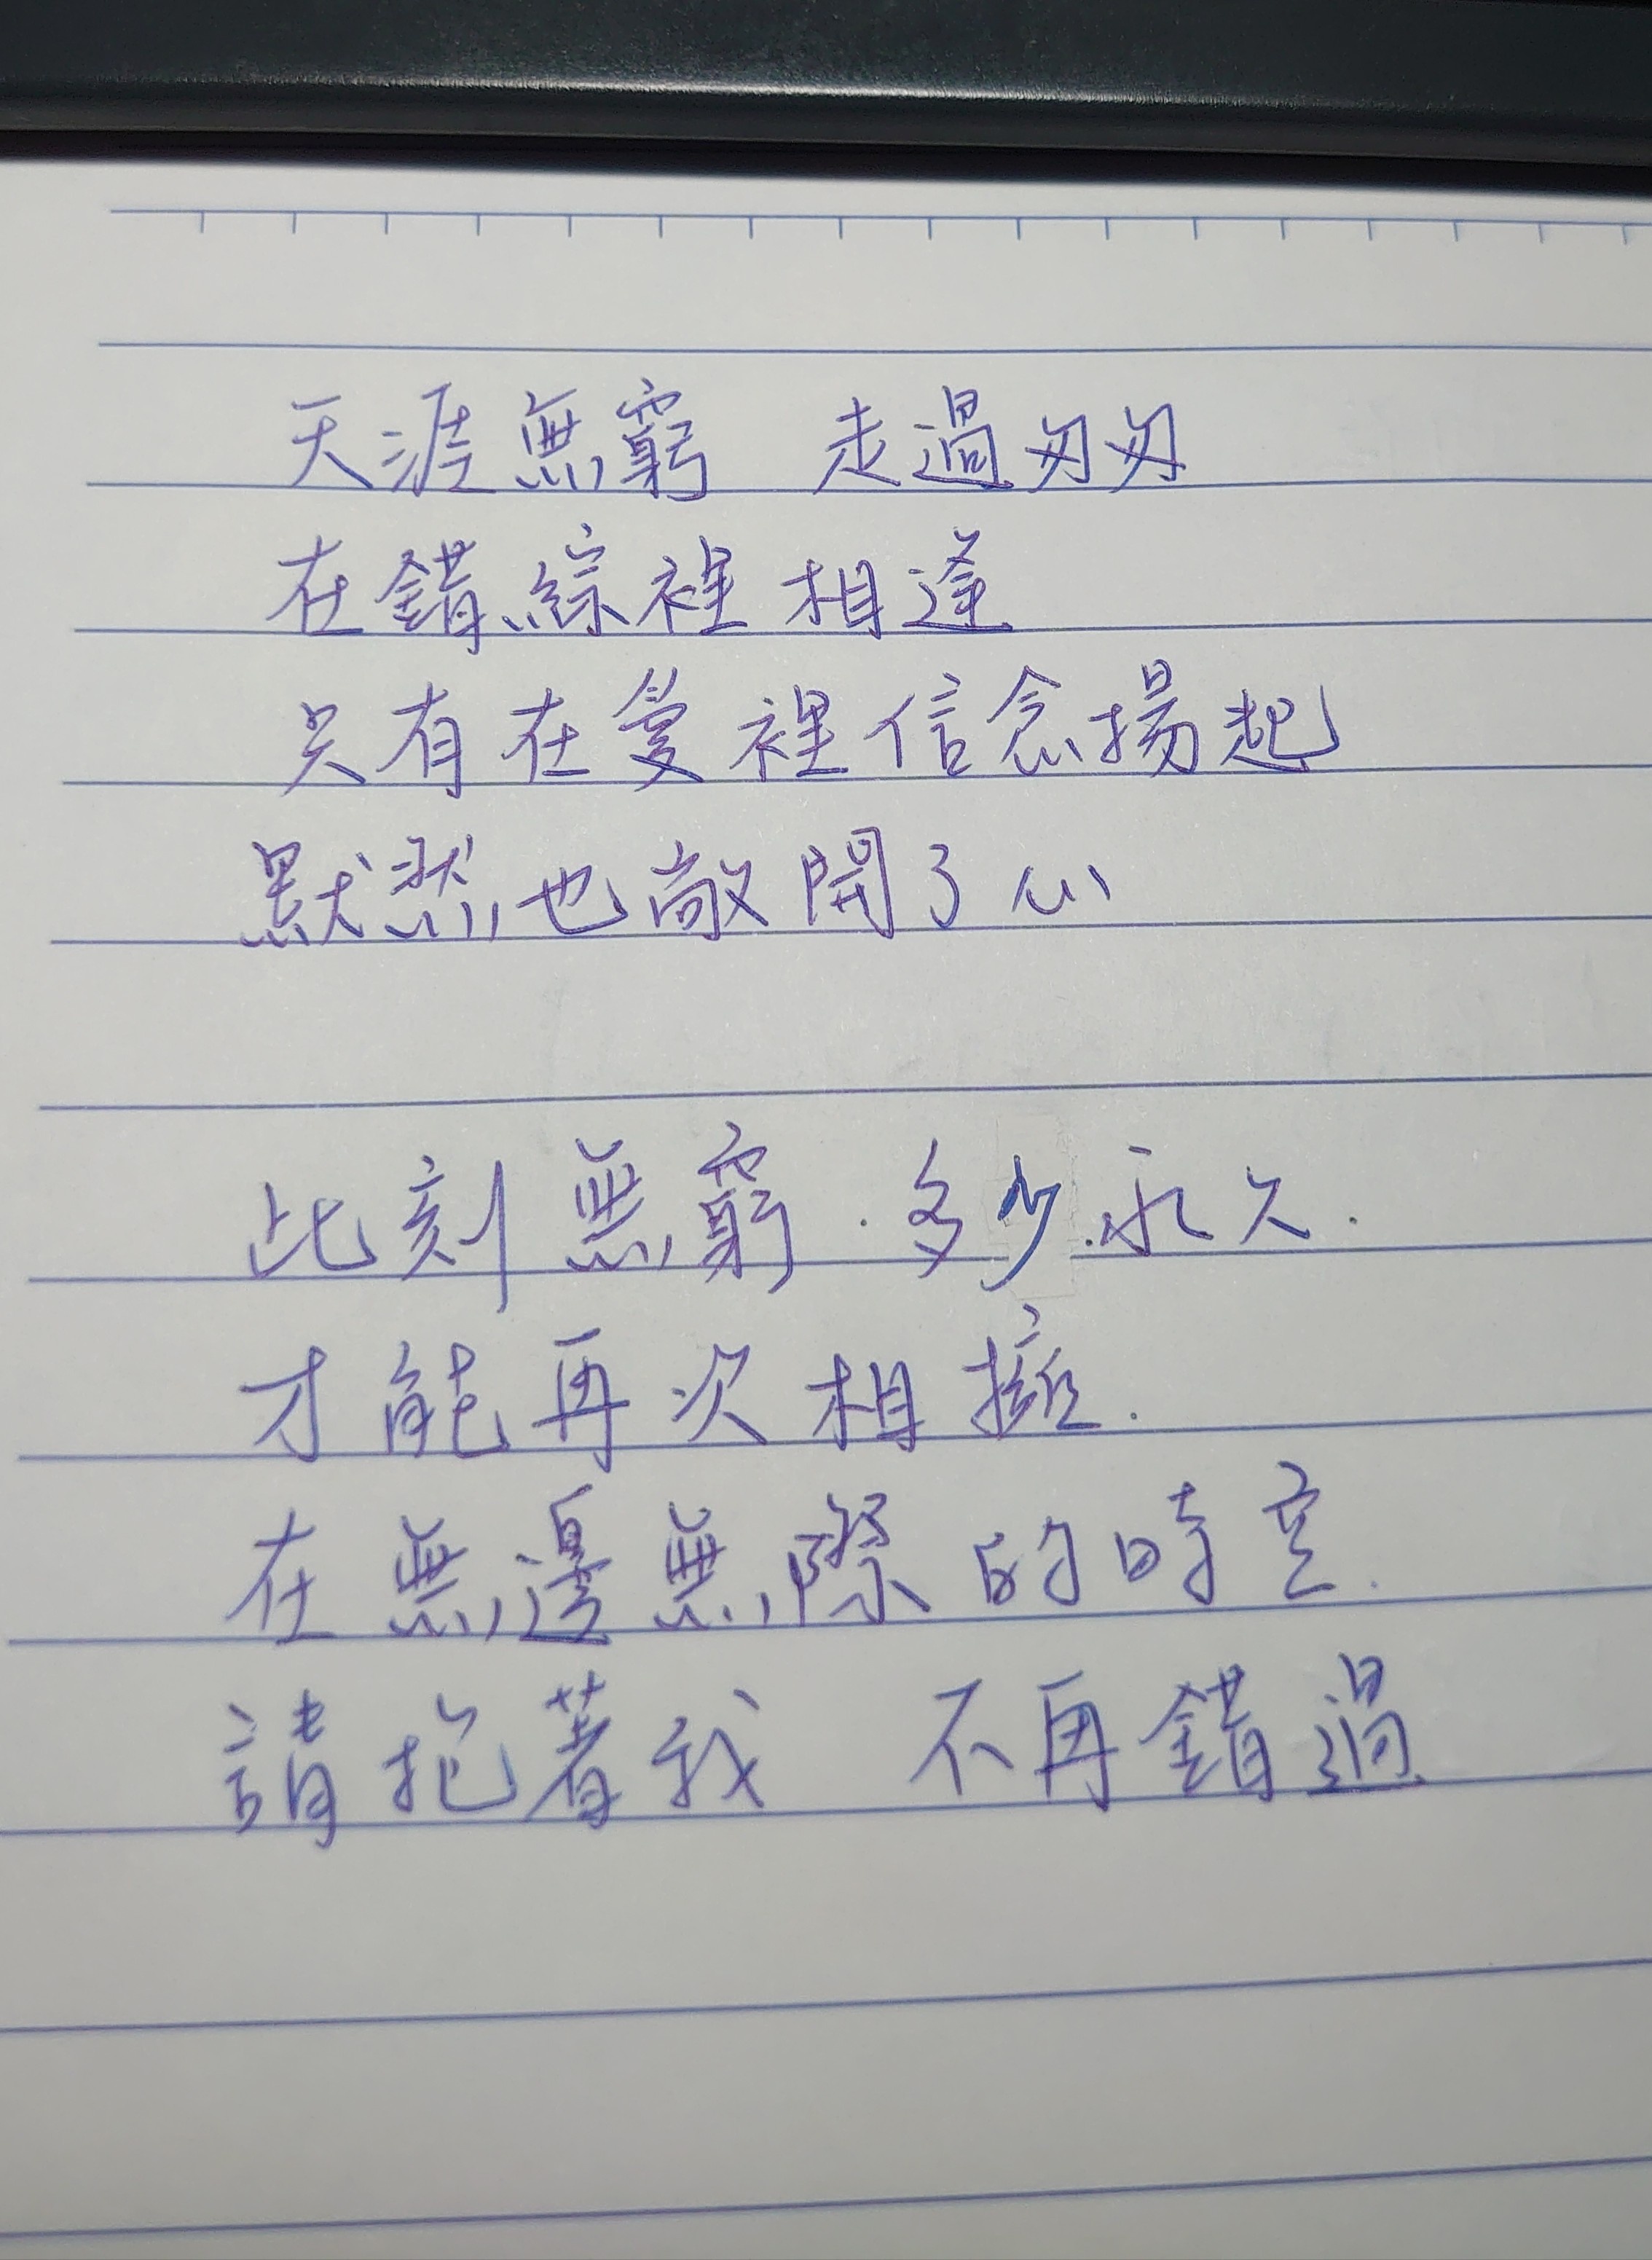 天涯無窮　走過匆匆
在錯綜裡相逢
只有在愛裡信念揚起
默然也敞開了心
此刻無窮．多少永久．
才能再次相擁．
在無邊無際的時空．
請抱著我　不再錯過